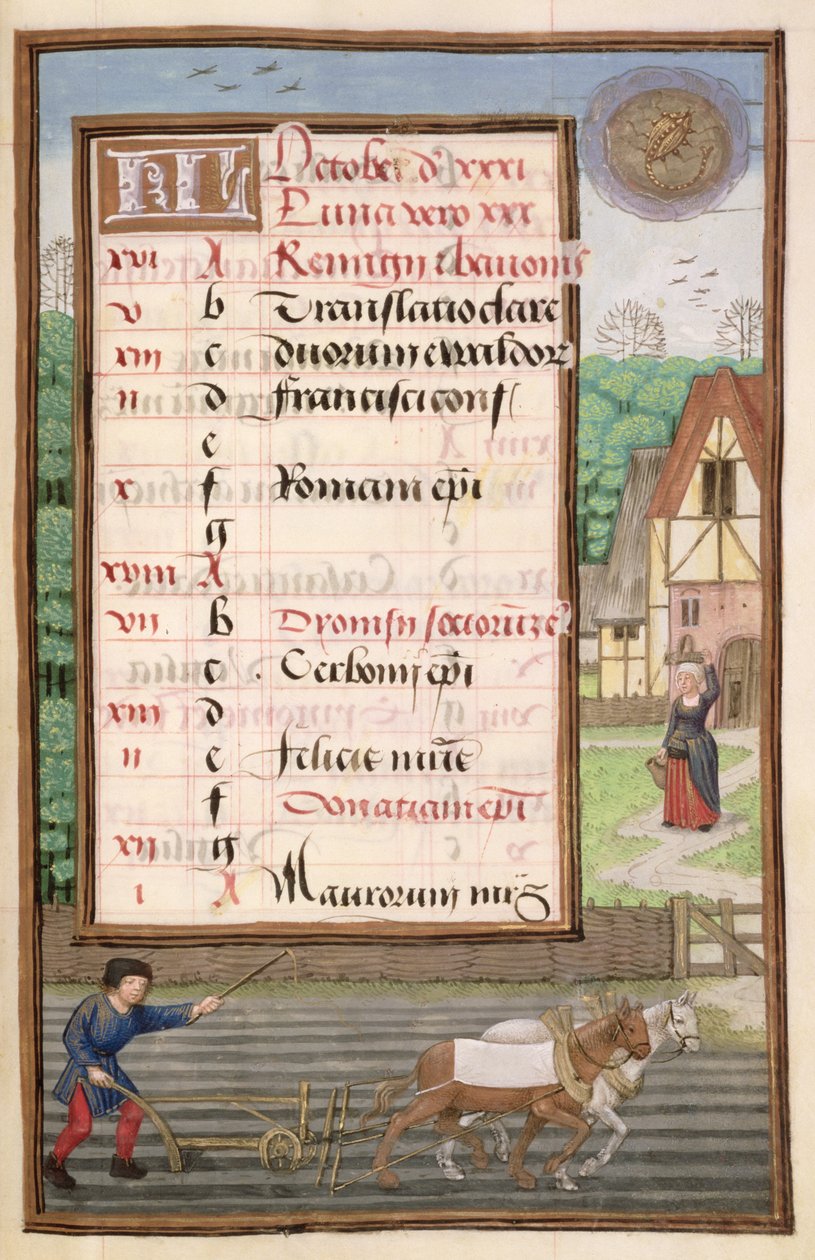 KL Octobe d' xxxi
Luna vero xxx
xvi A Remigii & bavonis
v b Translatio clare
xiii c duorum ewaldor
ii d Francisci conf
e
x f Romani ep̄i
g
xviii A
vii. b Dyonisii
c . Cerbonii ep̄i
xiii d
ii e Felicis
f Donatiani ep̄i
xii g
i A Maurorum